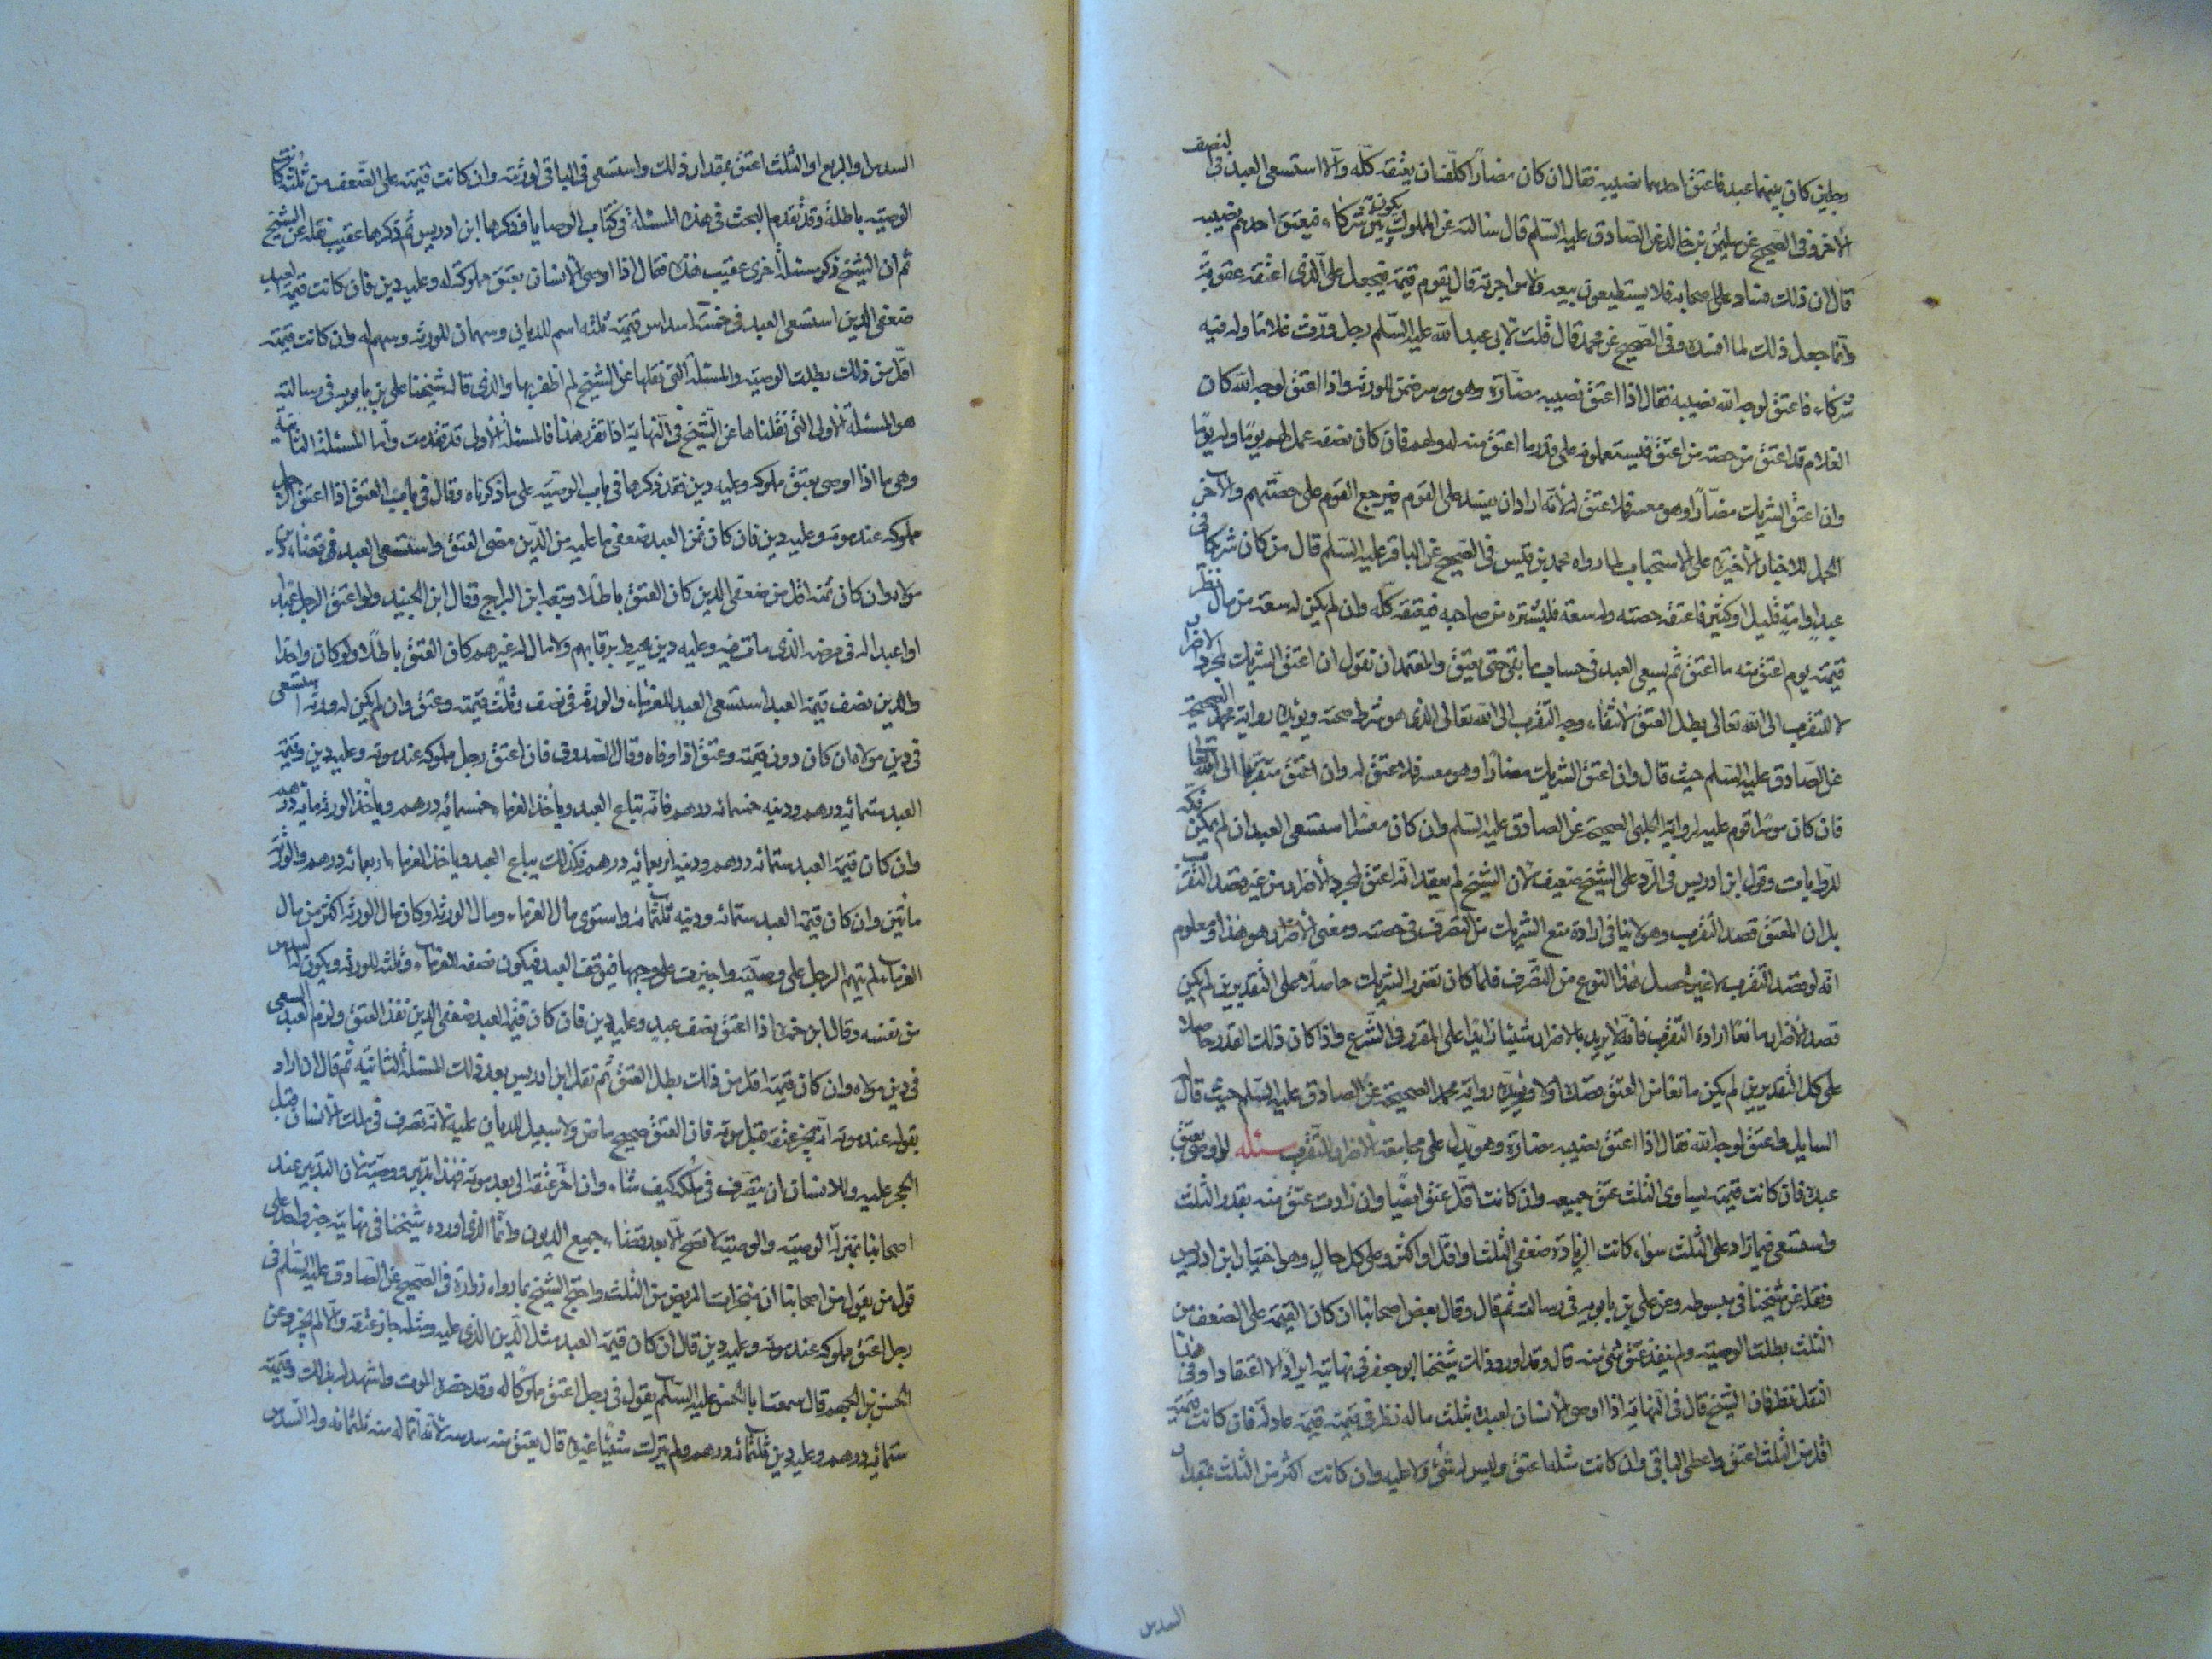 رجلين كان بينهما عبد فاعتق احدهما نصيبه فقال ان كان مضارا كلف ان يعتقه كله والا استسعى العبد فى النصف
الاخر وفى الصحيح عن سليمن بن خالد عن الصادق عليه السلم قال سالته عن المملوك يكون بين شركاء فيعتق احدهم نصيبه
قال ان ذلك فساد على اصحابه فلا يستطيعون بيعه ولا مواجرته قال يقوم قيمة فيجعل على الذى اعتقه عقوبة
وانما جعل ذلك لما افسده وفى الصحيح عن محمد قال قلت لابى عبد الله عليه السلم رجل ورث غلاما وله فيه
شركاء فاعتق لوجه الله نصيبه فقال اذا اعتق نصيبه مضارة وهو موسر ضمن للورثه واذا اعتق لوجه الله كان
الغلام قد اعتق من حصته من اعتق فيستعملونه على قدر ما اعتق منه له ولهم فان كان نصفه عمل لهم يوما وله يوما
وان اعتق الشريك مضارا وهو معسر فلا عتق له لانه اراد ان يفسد على القوم فيرجع القوم على حصتهم والاخر
الحمل للاخبار الاخيرة على الاستحباب لما رواه محمد بن قيس فى الصحيح عن الباقر عليه السلم قال من كان شريكا فى
عبد او امة قليل او كثير فاعتق حصته وله سعة فليشتره من صاحبه فيعتقه كله وان لم يكن له سعة من مال نظر
قيمته يوم اعتق منه ما اعتق ثم يسعى العبد فى حساب ما بقى حتى يعتق والمعتمد ان نقول ان اعتق الشريك لمجرد الاضرار
لا للتقرب الى الله تعالى بطل العتق لانتفاء وجه التقرب الى الله تعالى الذى هو شرط صحته ويؤيده رواية محمد الصحيحة
عن الصادق عليه السلم حيث قال وان اعتق الشريك مضارا وهو معسر فلا عتق له وان اعتق متقربا الى الله تعالى
فان كان موسرا قوم عليه لرواية الحلبى الصحيحة عن الصادق عليه السلم وان كان معسرا استسعى العبد ان لم يكن فكه
للروايات وقول ابن ادريس فى الرد على الشيخ ضعيف لان الشيخ لم يعتقد انه اعتق لمجرد الاضرار من غير قصد التقرب
بل ان المعتق قصد التقرب وهو لا ينافى ارادة منع الشريك من التصرف فى حصته ومعنى الاضرار هو هذا ومعلوم
انه لو قصد التقرب لا غير حصل هذا النوع من التصرف فلما كان تضرر الشريك حاصلا على التقديرين لم يكن
قصد الاضرار مانعا ارادة التقرب فانه لا يريد بالاضرار شيئا زايدا على المقرر فى الشرع واذا كان ذلك القدر حاصلا
على كل التقديرين لم يكن مانعا من العتق قصده اولا ويؤيده رواية محمد الصحيحة عن الصادق عليه السلم حيث قال
السايل واعتق لوجه الله فقال اذا اعتق نصيبه مضارة وهو يدل على مجامعة الاضرار للتقرب مسئله لو اوصى بعتق
عبده فان كانت قيمته يساوى الثلث عتق جميعه وان كانت اقل عتق ايضا وان زادت عتق منه بقدر الثلث
واستسعى فيما زاد على الثلث سواء كانت الزيادة ضعفى الثلث او اقل او اكثر وعلى كل حال وهو اختيار ابن ادريس
ونقله عن شيخنا فى مبسوطه وعن على بن بابويه فى رسالته ثم قال وقال بعض اصحابنا ان كان القيمة على الضعف من
الثلث بطلت الوصيه ولم ينفذ عتق شئ منه قال وقد اورد ذلك شيخنا ابو جعفر فى نهايته ايرادا لا اعتقادا وفى هذا
النقل نظر فان الشيخ قال فى النهاية اذا اوصى الانسان لعبده بثلث ماله نظر فى قيمته قيمة عادلة فان كانت قيمته
اقل من الثلث اعتق واعطى الباقى وان كانت مثله اعتق وليس له شئ ولا عليه وان كانت اكثر من الثلث بمقدار
السدس
السدس او الربع او الثلث اعتق بمقدار ذلك واستسعى فى الباقى لورثته وان كانت قيمته على الضعف من ثلثه كانت
الوصيه باطلة وقد تقدم البحث فى هذه المسئلة فى كتاب الوصايا وذكرها ابن ادريس ثم ذكرها عقيب نقله عن الشيخ
ثم ان الشيخ ذكر مسئلة اخرى عقيب هذه فقال اذا اوصى الانسان بعتق مملوكه له وعليه دين فان كانت قيمة العبد
ضعفى الدين استسعى العبد فى خمسة اسداس قيمته ثلثه اسهم للديان وسهمان للورثه وسهم له وان كانت قيمته
اقل من ذلك بطلت الوصيه والمسئله التى نقلها عن الشيخ لم اظفر بها والذى قاله شيخنا على بن بابويه فى رسالته
هو المسئلة الاولى التى نقلناها عن الشيخ فى النهاية اذا تقرر هذا فالمسئلة الاولى قد تقدمت واما المسئلة الثانية
وهى ما اذا اوصى بعتق مملوكه وعليه دين فقد ذكرها فى باب الوصيه على ما ذكرناه وقال فى باب العتق اذا اعتق الرجل
مملوكه عند موته وعليه دين فان كان ثمن العبد ضعفى ما عليه من الدين مضى العتق واستسعى العبد فى قضاء دين
مولاه وان كان ثمنه اقل من ضعفى الدين كان العتق باطلا وتبعه ابن البراج وقال ابن الجنيد ولو اعتق الرجل عبدا
او اعبدا له فى مرضه الذى مات فيه وعليه دين يحيط برقابهم ولا مال له غيرهم كان العتق باطلا ولو كان واحدا
والدين نصف قيمة العبد استسعى العبد للغرماء والورثه فى نصف وثلث قيمته وعتق وان لم يكن له ورثه استسعى
فى دين مولاه ان كان دون قيمته وعتق اذا وفاه وقال الصدوق فان اعتق رجل مملوكه عند موته وعليه دين وقيمة
العبد ستمائه درهم ودينه خمسمائه درهم فانه تباع العبد وياخذ الغرماء خمسمائه درهم وياخذ الورثه مائه درهم
وان كان قيمة العبد ستمائه درهم ودينه اربعمائه درهم فكذلك يباع العبد وياخذ الغرماء اربعمائه درهم والورثة
مائتين وان كان قيمة العبد ستمائه ودينه ثلثمائه واستوى مال الغرماء ومال الورثه او كان مال الورثه اكثر من مال
الغرماء لم يتهم الرجل على وصيته واجيزت على وجهها فيوقف العبد فيكون نصفه للغرماء وثلثه للورثه ويكون له السدس
من نفسه وقال ابن حمزه اذا اعتق نصف عبد وعليه دين فان كان قيمة العبد ضعفى الدين نفذ العتق ولزم العبد السعى
فى دين مولاه وان كان قيمته اقل من ذلك بطل العتق ثم نقل ابن ادريس بعد ذلك المسئلة الثانية ثم قال ان اراد
بقوله عند موته انه نجز عتقه قبل موته فان العتق صحيح ماض ولا سبيل للديان عليه لانه تصرف فى ملك الانسان قبل
الحجر عليه وللانسان ان يتصرف فى ملكه كيف شاء وان اخر عتقه الى بعد موته فهذا تدبير ووصيته لان التدبير عند
اصحابنا بمنزلة الوصيه والوصيه لا تصح الا بعد قضاء جميع الديون وانما الذى اورده شيخنا فى نهايته خبر واحد على
قول من يقول من اصحابنا ان منجزات المريض من الثلث واحتج الشيخ بما رواه زرارة فى الصحيح عن الصادق عليه السلم فى
رجل اعتق مملوكه عند موته وعليه دين قال ان كان قيمة العبد مثل الدين الذى عليه ومثله جاز عتقه والا لم يجز وعن
الحسن بن الجهم قال سمعت ابا الحسن عليه السلم يقول فى رجل اعتق مملوكا له وقد حضره الموت واشهد له بذلك وقيمته
ستمائه درهم وعليه دين ثلثمائه درهم ولم يترك شيئا غيره قال يعتق منه سدسه لانه انما له منه ثلثمائه وله السدس